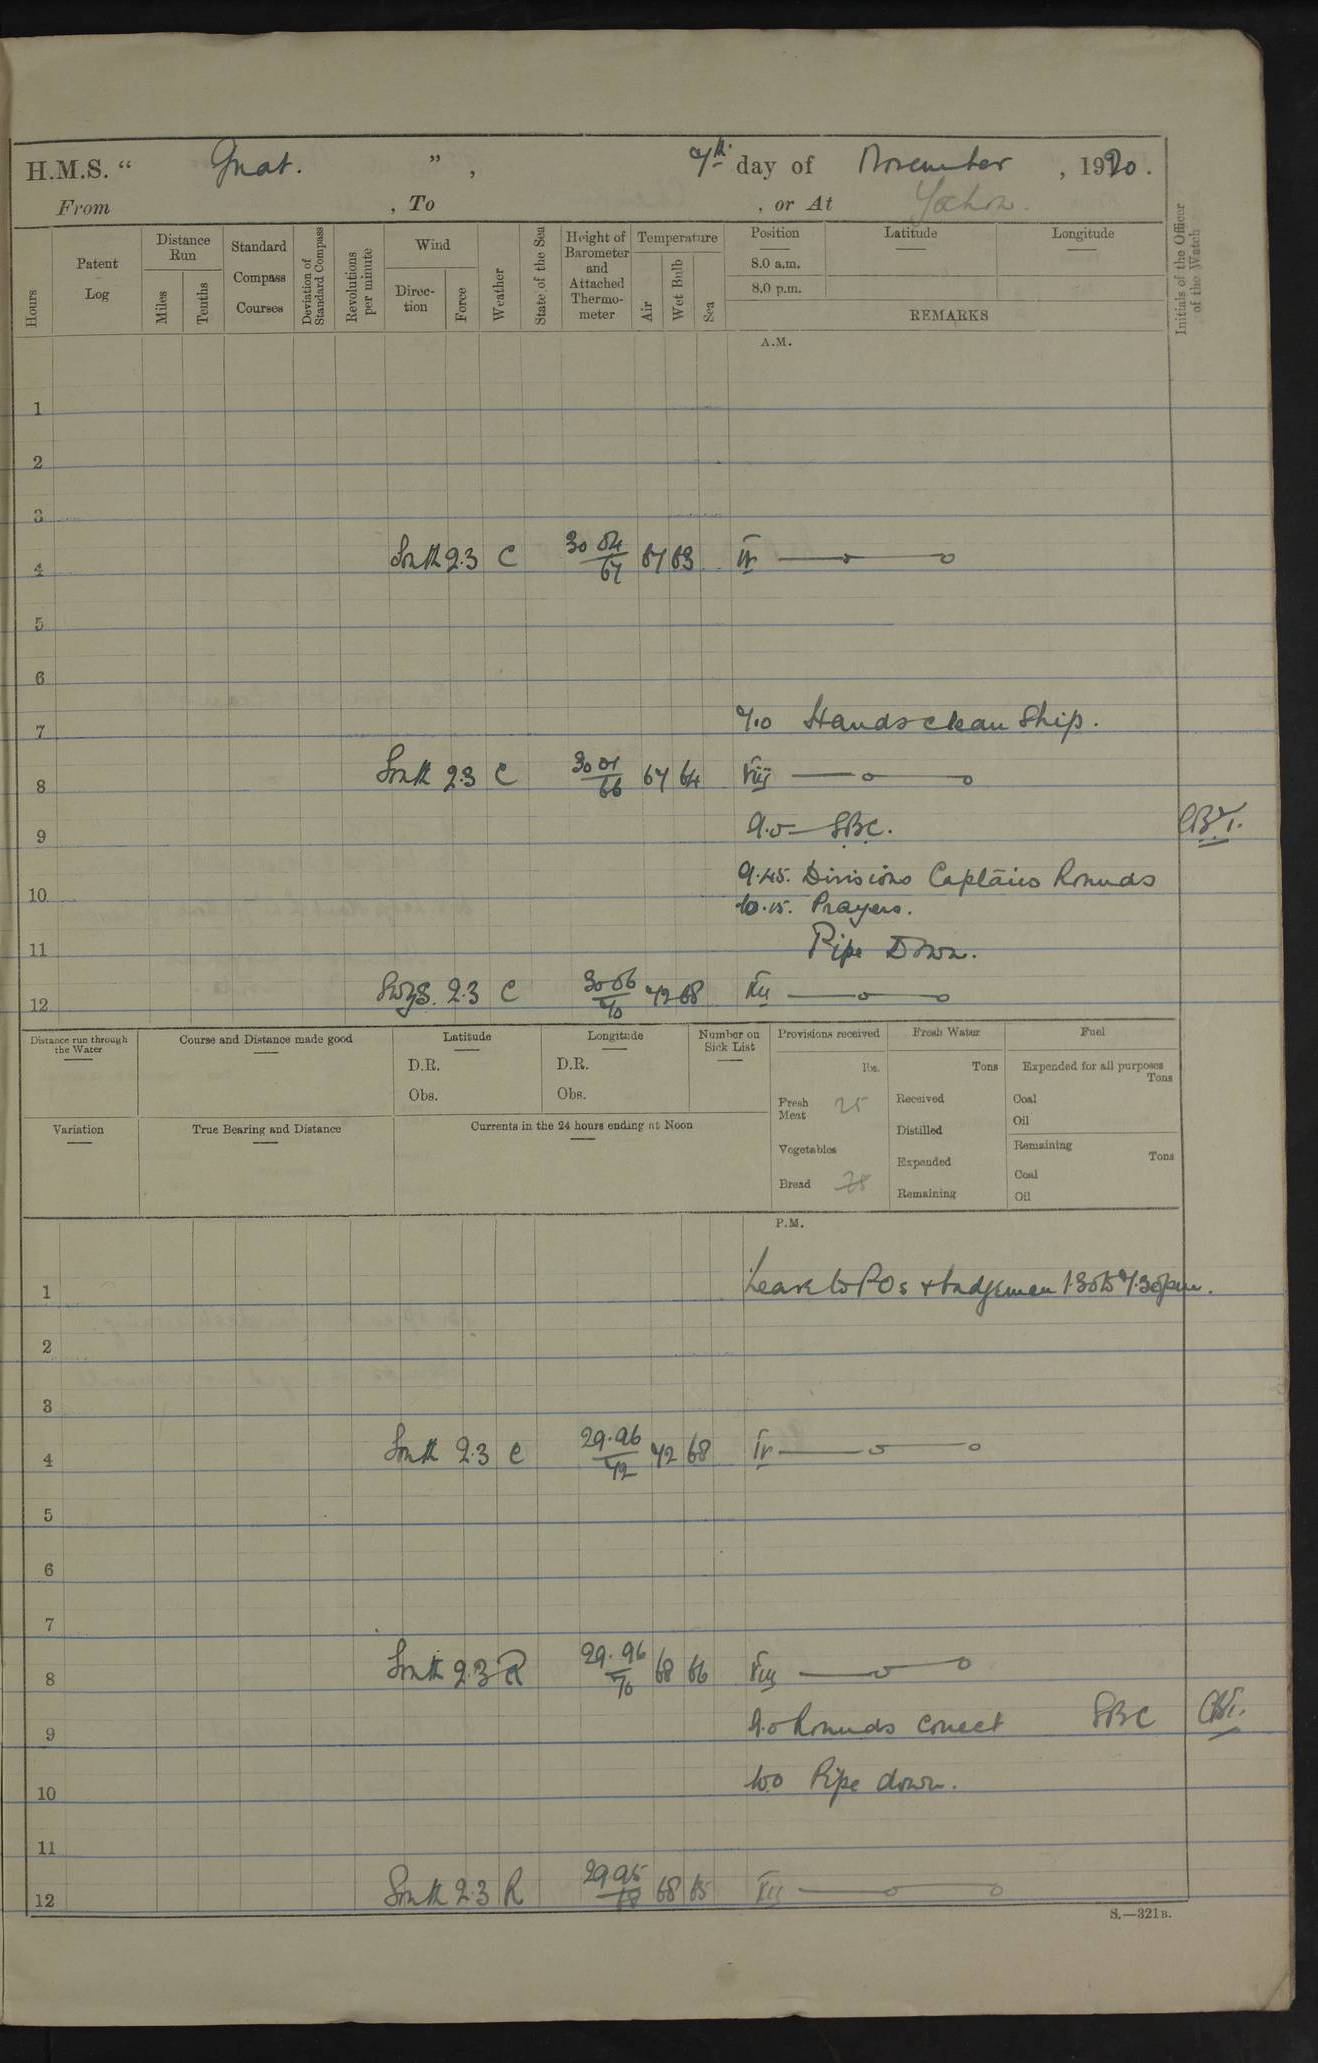 H.M.S. “ Gnat. ” , 7th day of November , 1920 .
From , To , or At Yochow.
Hours
Patent Log
Distance Run
Miles
Tenths
Standard Compass Courses
Deviation of Standard Compass
Revolutions per minute
Wind
Direction
Force
Weather
State of the Sea
Height of Barometer and Attached Thermometer
Temperature
Air
Wet Bulb
Sea
Position
Latitude
Longitude
8.0 a.m.
8.0 p.m.
REMARKS
Initials of the Officer of the Watch
A.M.
1
2
3
4 South 2.3 C 30 04/67 67 63 IV
5
6
7 7.0 Hands clean Ship.
8 South 2.3 C 30 01/66 67 64 VIII
9 9.0 SBC.
9.45. Divisions Captains Rounds
10 10.15. Prayers.
11 Pipe Down.
12 2.3 C 30 06/70 72 68 XII
Distance run through the Water
Course and Distance made good
Latitude
D.R.
Obs.
Longitude
D.R.
Obs.
Number on Sick List
Provisions received
lbs.
Fresh Meat 25
Vegetables
Bread 28
Fresh Water
Tons
Received
Distilled
Expended
Remaining
Fuel
Expended for all purposes
Tons
Coal
Oil
Remaining
Tons
Coal
Oil
Variation
True Bearing and Distance
Currents in the 24 hours ending at Noon
P.M.
1 Leave to POs + badgemen 1.30 to 7.30 pm.
2
3
4 South 2.3 C 29.96/72 72 68 IV
5
6
7
8 South 2.3 R 29.96/70 68 66 VIII
9 9.0 Rounds correct SBC
10 10.0 Pipe down.
11
12 South 2.3 R 29 95/68 68 65 XII
S.—321B.